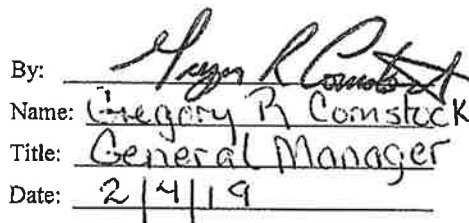 By: Gregory R Comstock
Name: Gregory R Comstock
Title: General Manager
Date: 2/4/19